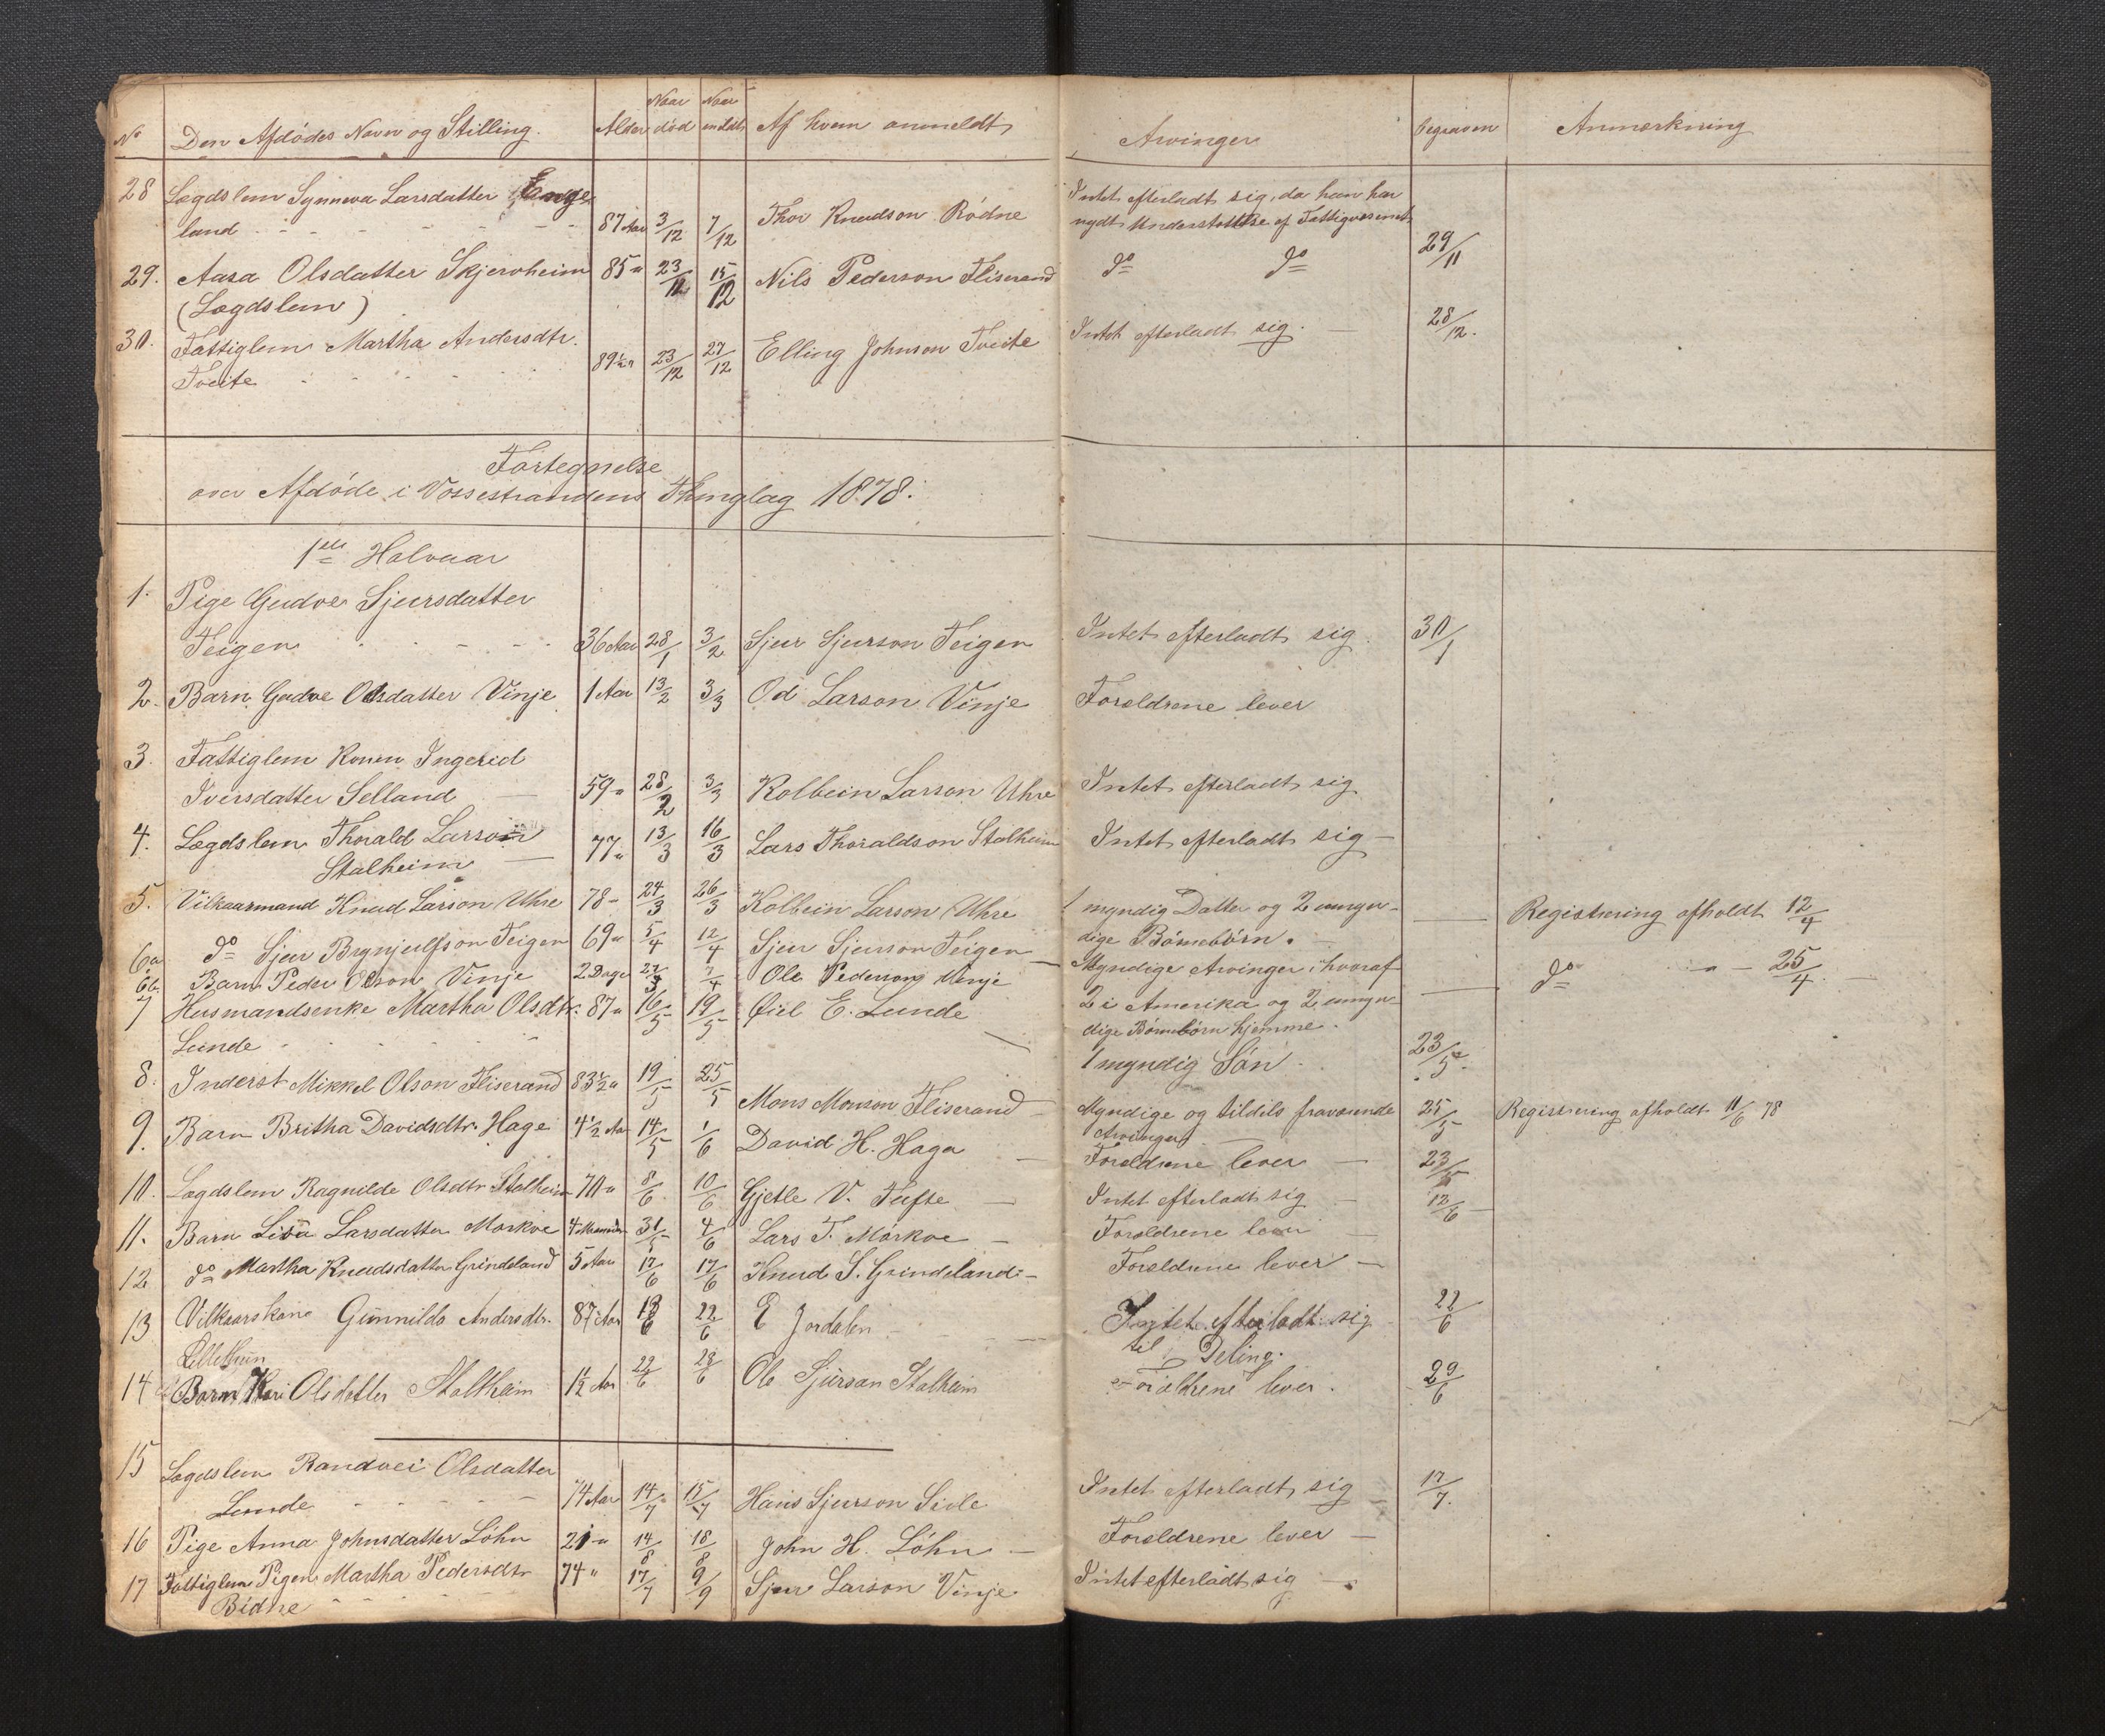 No Den Afdödes Navn og Stilling. Alder Naar död Naar anmeldt Af hvem anmeldt Arvinger begraven Anmærkning
28 Lægdslem Synneva Larsdatter Enge-
land 87 Aar 3/12 7/12 Thor Knudson Rödne Intet efterladt sig, da hun har
nydt Understöttelse af Fattigvæsenet
29. Aasa Olsdatter Skjerveheim 85 " 23/11 15/12 Nils Pederson Fliserand do do 29/11
(Lægdslem)
30. Fattiglem Martha Andersdtr.
Tveite 89½ " 23/12 27/12 Elling Johnson Tveite Intet efterladt sig. 28/12.
Fortegnelse
over Afdöde i Vossestrandens Thinglag 1878.
1ste Halvaar
1. Pige Gudve Sjursdatter
Teigen 36 Aar 28/1 3/2 Sjur Sjurson Teigen Intet efterladt sig. 30/1
2. Barn Gudve Odsdatter Vinje 1 Aar 13/2 3/3 Od Larson Vinje Forældrene lever
3. Fattiglem Konen Ingerid
Iversdatter Selland 59 " 28/2 3/3 Kolbein Larson Uhre Intet efterladt sig
4. Lægdslem Thorald Larson
Stalheim 77 " 13/3 16/3 Lars Thoraldson Stalheim Intet efterladt sig
5. Vilkaarmand Knud Larson Uhre 78 " 24/3 26/3 Kolbein Larson Uhre 1 myndig Datter og 2 umyn-
dige Börnebörn. Registrering afholdt 12/4
6a do Sjur Brynjulfson Teigen 69 " 5/4 12/4 Sjur Sjurson Teigen Myndige Arvinger, hvoraf
2 i Amerika og 2 umyn-
dige Börnebörn hjemme. do " 25/4.
6b. Barn Peder Olson Vinje 2 Dage 27/3 7/4 Ole Pederson Vinje
7 Husmandsenke Martha Olsdtr. 87 " 16/5 19/5 Eiel E. Lunde
Lunde 1 myndig Sön. 23/5.
8. Inderst Mikkel Olson Fliserand 83½ " 19/5 25/5 Mons Monson Fliserand Myndige og tildels fraværende
Arvinger 25/5 Registrering afholdt 11/6 78
9. Barn Britha Davidsdtr. Hage 4½ Aar 14/5 1/6 David H. Haga Forældrene lever 23/5
10. Lægdslem Ragnilde Olsdtr Stalheim 70 " 8/6 10/6 Gjetle V. Tufte Intet efterladt sig 12/6
11. Barn Larsdatter Mörkve 4 Maaneder 31/5 4/6 Lars T. Mörkve Forældrene lever
12 do Martha Knudsdatter Grindeland 5 Aar 17/6 17/6 Knud S. Grindeland Forældrene lever
13 Vilkaarskone Gunnilda Andersdtr. 87 Aar 18/6 22/6 E Jordalen Intet efterladt sig
til Deling. 22/6
14 Barn Kari Olsdatter Stalheim 1½ Aar 22/6 28/6 Ole Sjurson Stalheim Forældrene lever. 29/6
15 Lægdslem Randvei Olsdatter
Lunde 74 Aar 14/7 15/7 Hans Sjurson Sivle Intet efterladt sig 17/7.
16 Pige Anna Johnsdatter Löhn 21 " 14/8 18/8 John H. Löhn Forældrene lever
17 Fattiglem Pigen Martha Pedersdtr 74 " 17/7 9/9 Sjur Larson Vinje Intet efterladt sig
Bidne